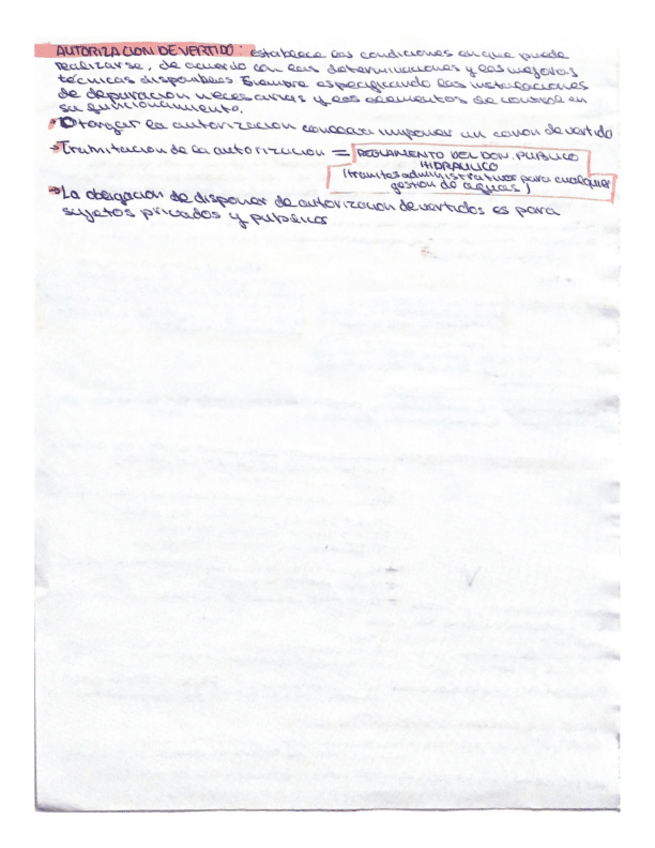 AUTORIZACION DE VERTIDO: establece las condiciones en que puede
realizarse, de acuerdo con las determinaciones y las mejoras
técnicas disponibles. Siempre especificando las instalaciones
de depuracion necesarias y los elementos de control en
su funcionamiento.
Otorgar la autorizacion conlleva imponer un canon de vertido
Tramitacion de la autorizacion = REGLAMENTO DEL DOM. PUBLICO
HIDRAULICO
(tramites administrativos para cualquier
gestion de aguas)
La obligacion de disponer de autorizacion de vertidos es para
sujetos privados y publicos